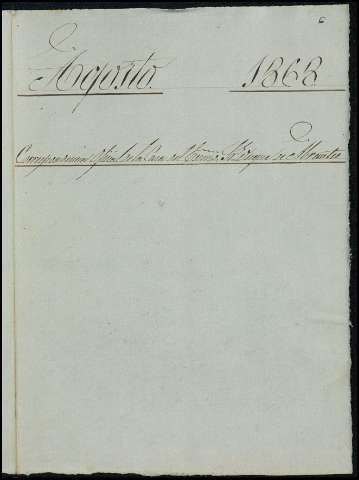 6
Agosto. 1868.
Correspondencia Oficial de la Casa del Excmo. Sr. Duque de